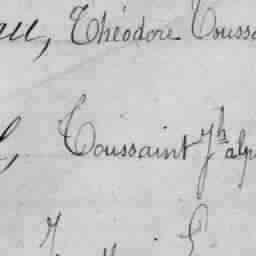 au, Théodore Touss
l, Toussaint Jh alp